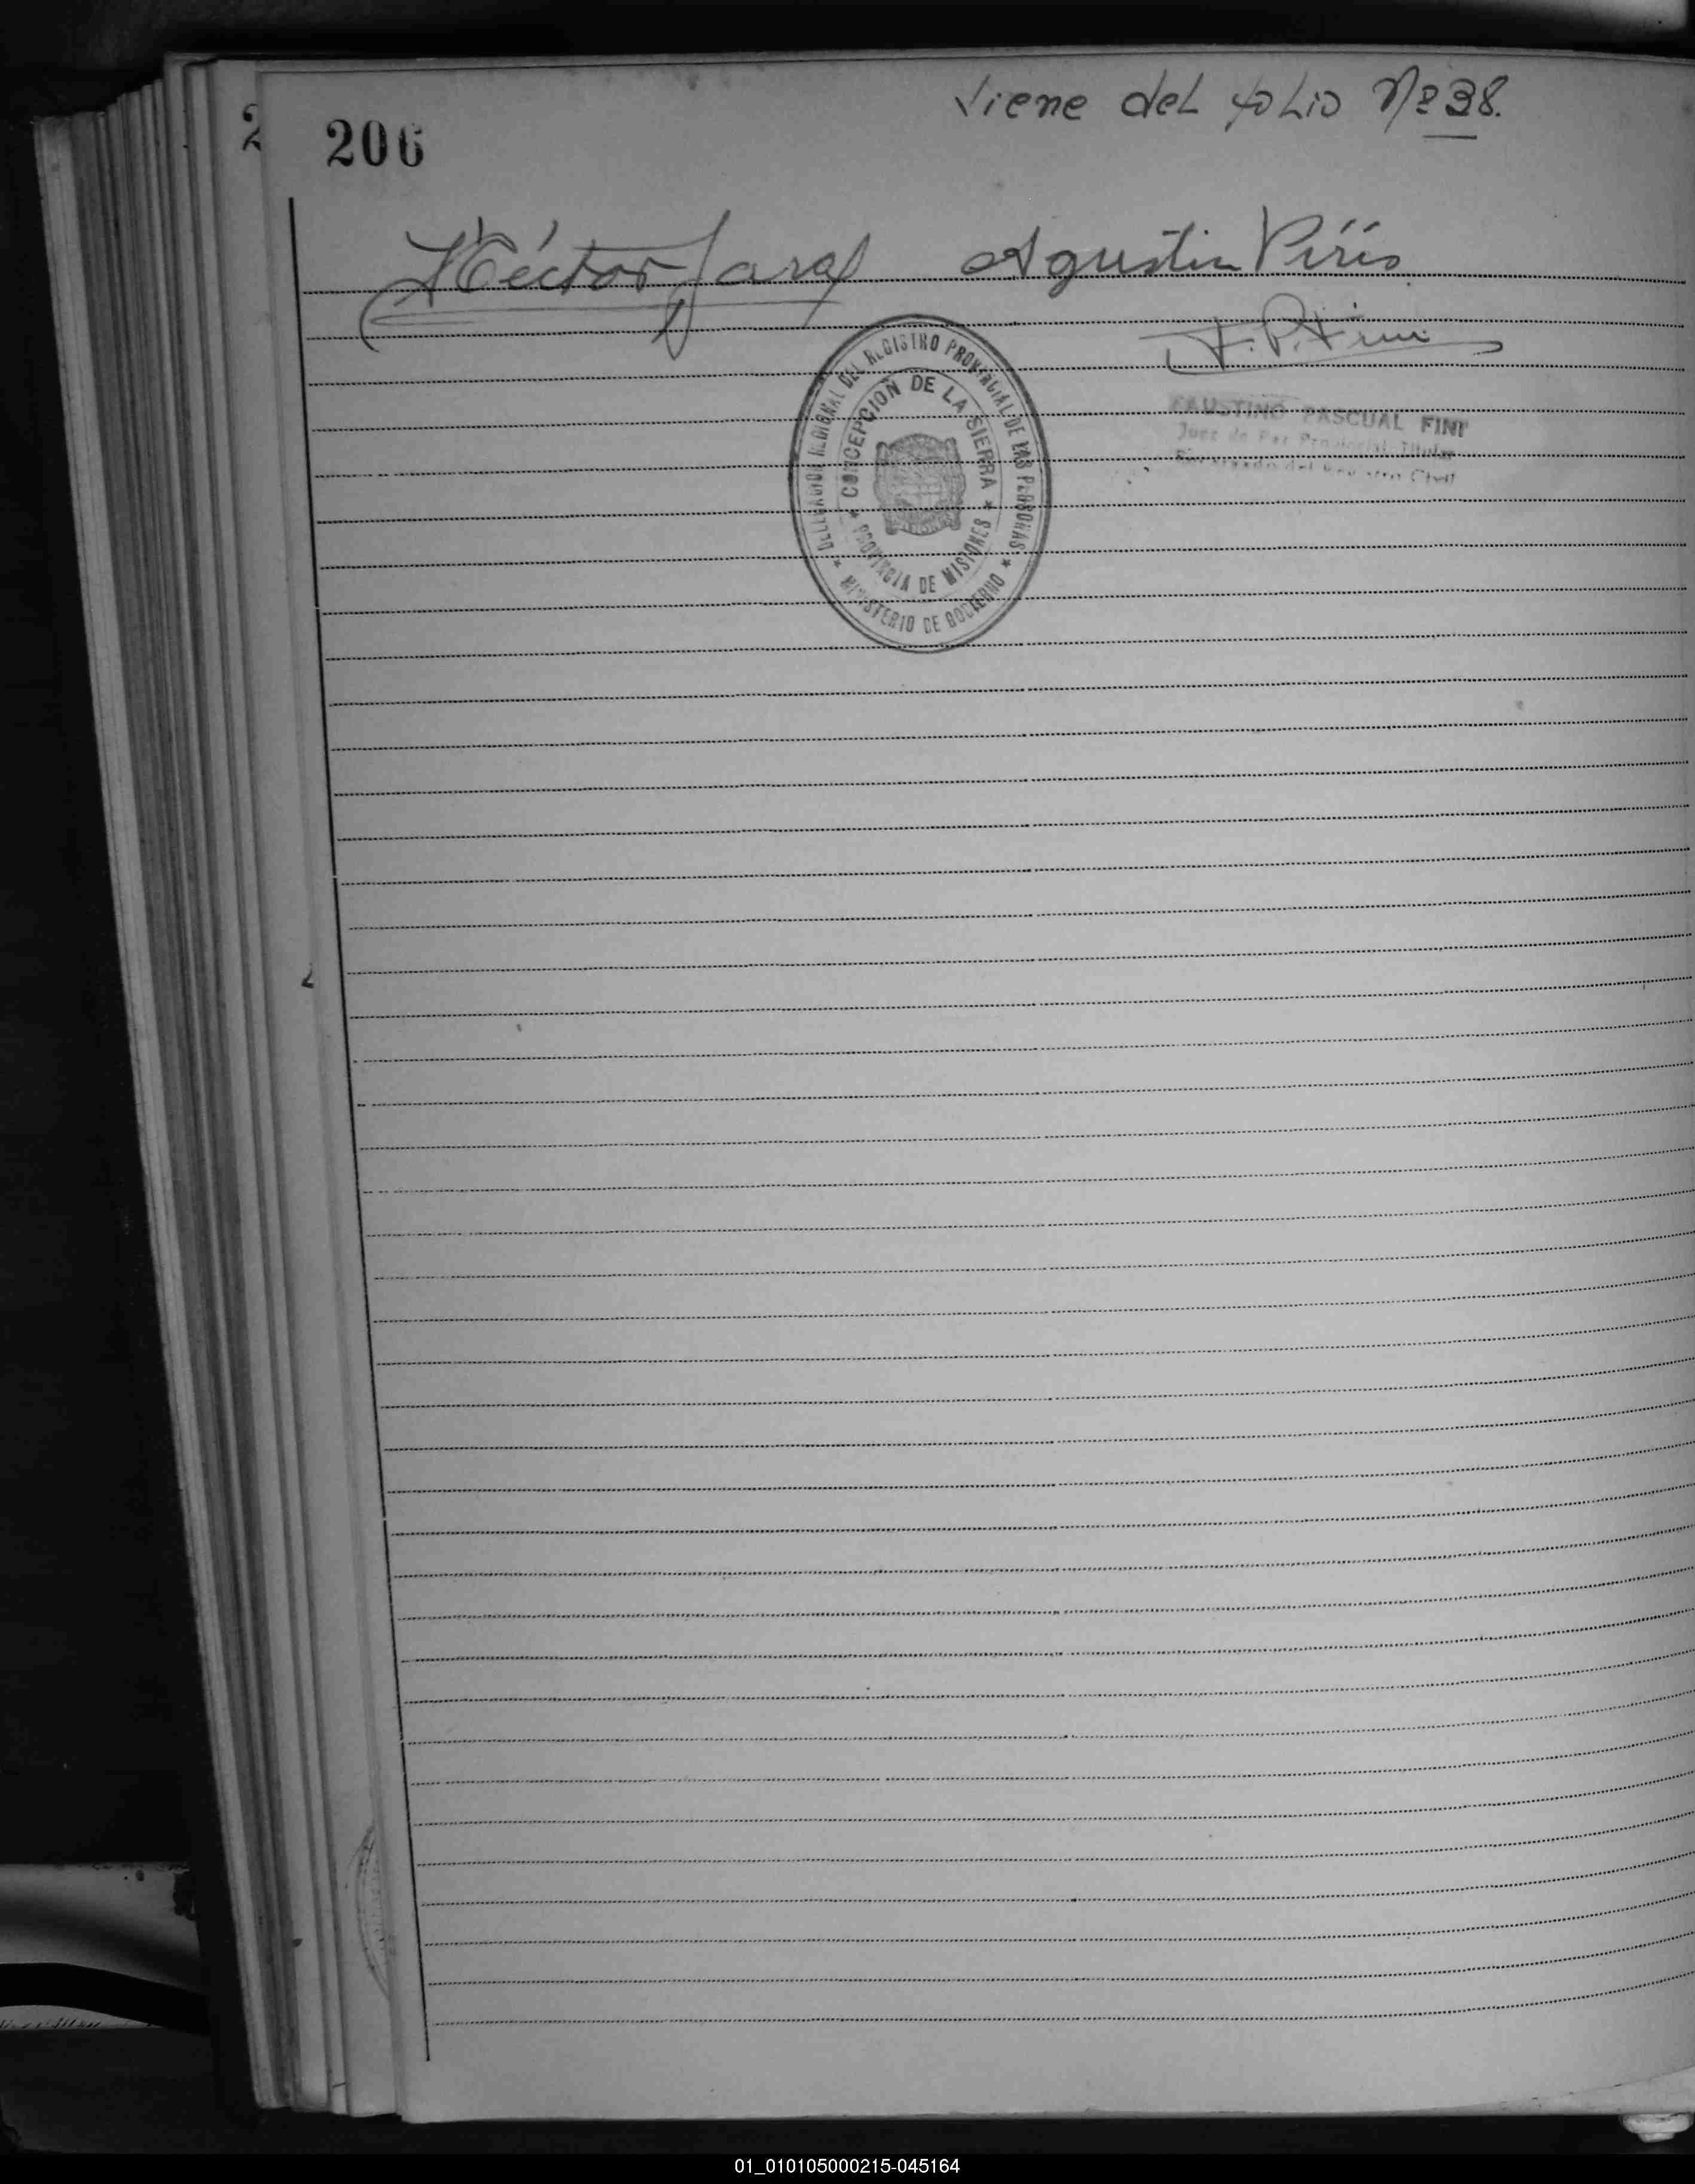 Viene del folio Nº 38.
206
Héctor Jara Agustin Piris
F. P. Fini
DELEGACION REGIONAL DEL REGISTRO PROVINCIAL DE LAS PERSONAS
★ MINISTERIO DE GOBIERNO ★
★ CONCEPCION DE LA SIERRA ★
PROVINCIA DE MISIONES
FAUSTINO PASCUAL FINI
Juez de Paz Provincial Titular
Encargado del Registro Civil
2
01_010105000215-045164